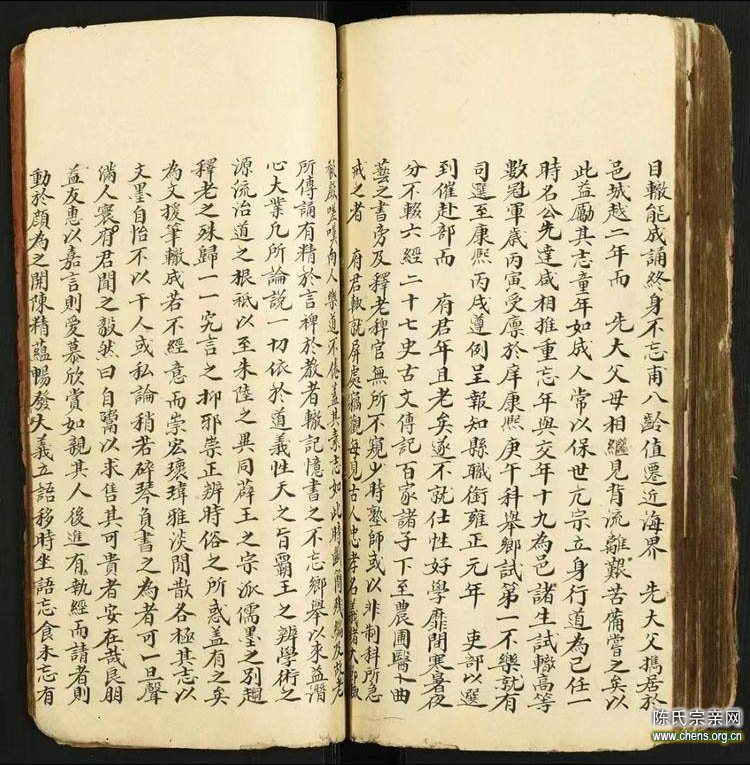 目輙能成誦終身不忘甫八齡值遷近海界　先大父攜居於
邑城越二年而　先大父母相繼見背流離艱苦備嘗之矣以
此益勵其志童年如成人常以保世亢宗立身行道為己任一
時名公先達咸相推重忘年與交年十九為邑諸生試輙高等
數冠軍歲丙寅受廪於庠康熙庚午科舉鄉試第一不樂就有
司選至康熙丙戌遵例呈報知縣職銜雍正元年　吏部以選
到催赴部而　府君年且老矣遂不就仕性好學靡間寒暑夜
分不輟六經二十七史古文傳記百家諸子下至農圃醫卜曲
藝之書旁及釋老稗官無所不窺少時塾師或以非制科所急
戒之者　府君輙就屏處徧觀每見古人忠孝名義諸大節輙
人樂道不倦蓋其素志如此時
所傳誦有精於言裨於教者輙記憶書之不忘鄉舉以來益潛
心大業凡所論說一切依於道義性天之旨霸王之辨學術之
源流治道之根祗以至朱陸之異同薛王之宗派儒墨之別趨
釋老之殊歸一一究言之抑邪崇正辨時俗之所惑盖有之矣
為文援筆輙成若不經意而崇宏瓌瑋雅淡閒散各極其志以
文墨自怡不以干人或私論稍若碎琴負書之為者可一旦聲
滿人寰府君聞之毅然曰自鬻以求售其可貴者安在哉良朋
益友惠以嘉言則愛慕欣賞如親其人後進有執經而請者則
動於顔為之開陳精蘊暢發大義立語移時坐語忘食未忘有
陈氏宗亲网
www.chens.org.cn